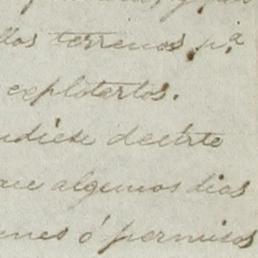 llos terrenos, p.ª
explotarlos.
udiese decirte
que algunos dias
enes ó permisos